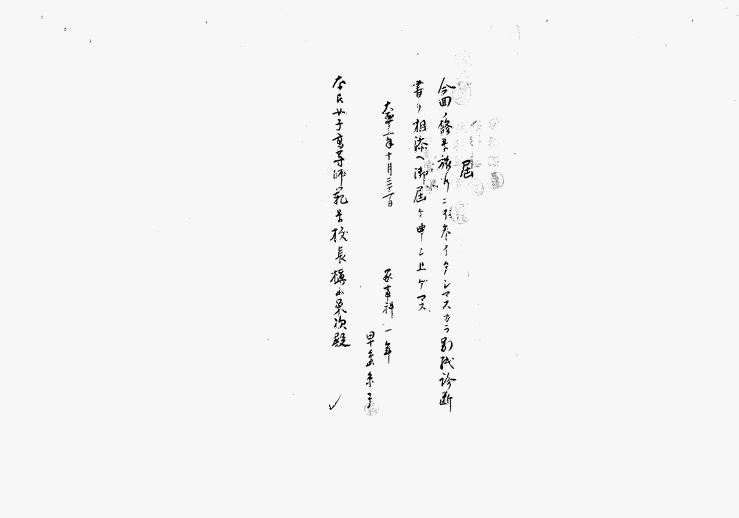 届
今回ノ修学旅行ニ不参イタシマスカラ別紙診断
書ヲ相添ヘ御届ケ申シ上ゲマス
大正十二年十月三十一日
家事科一年
早 子
奈良女子高等師範学校長槇山栄次殿